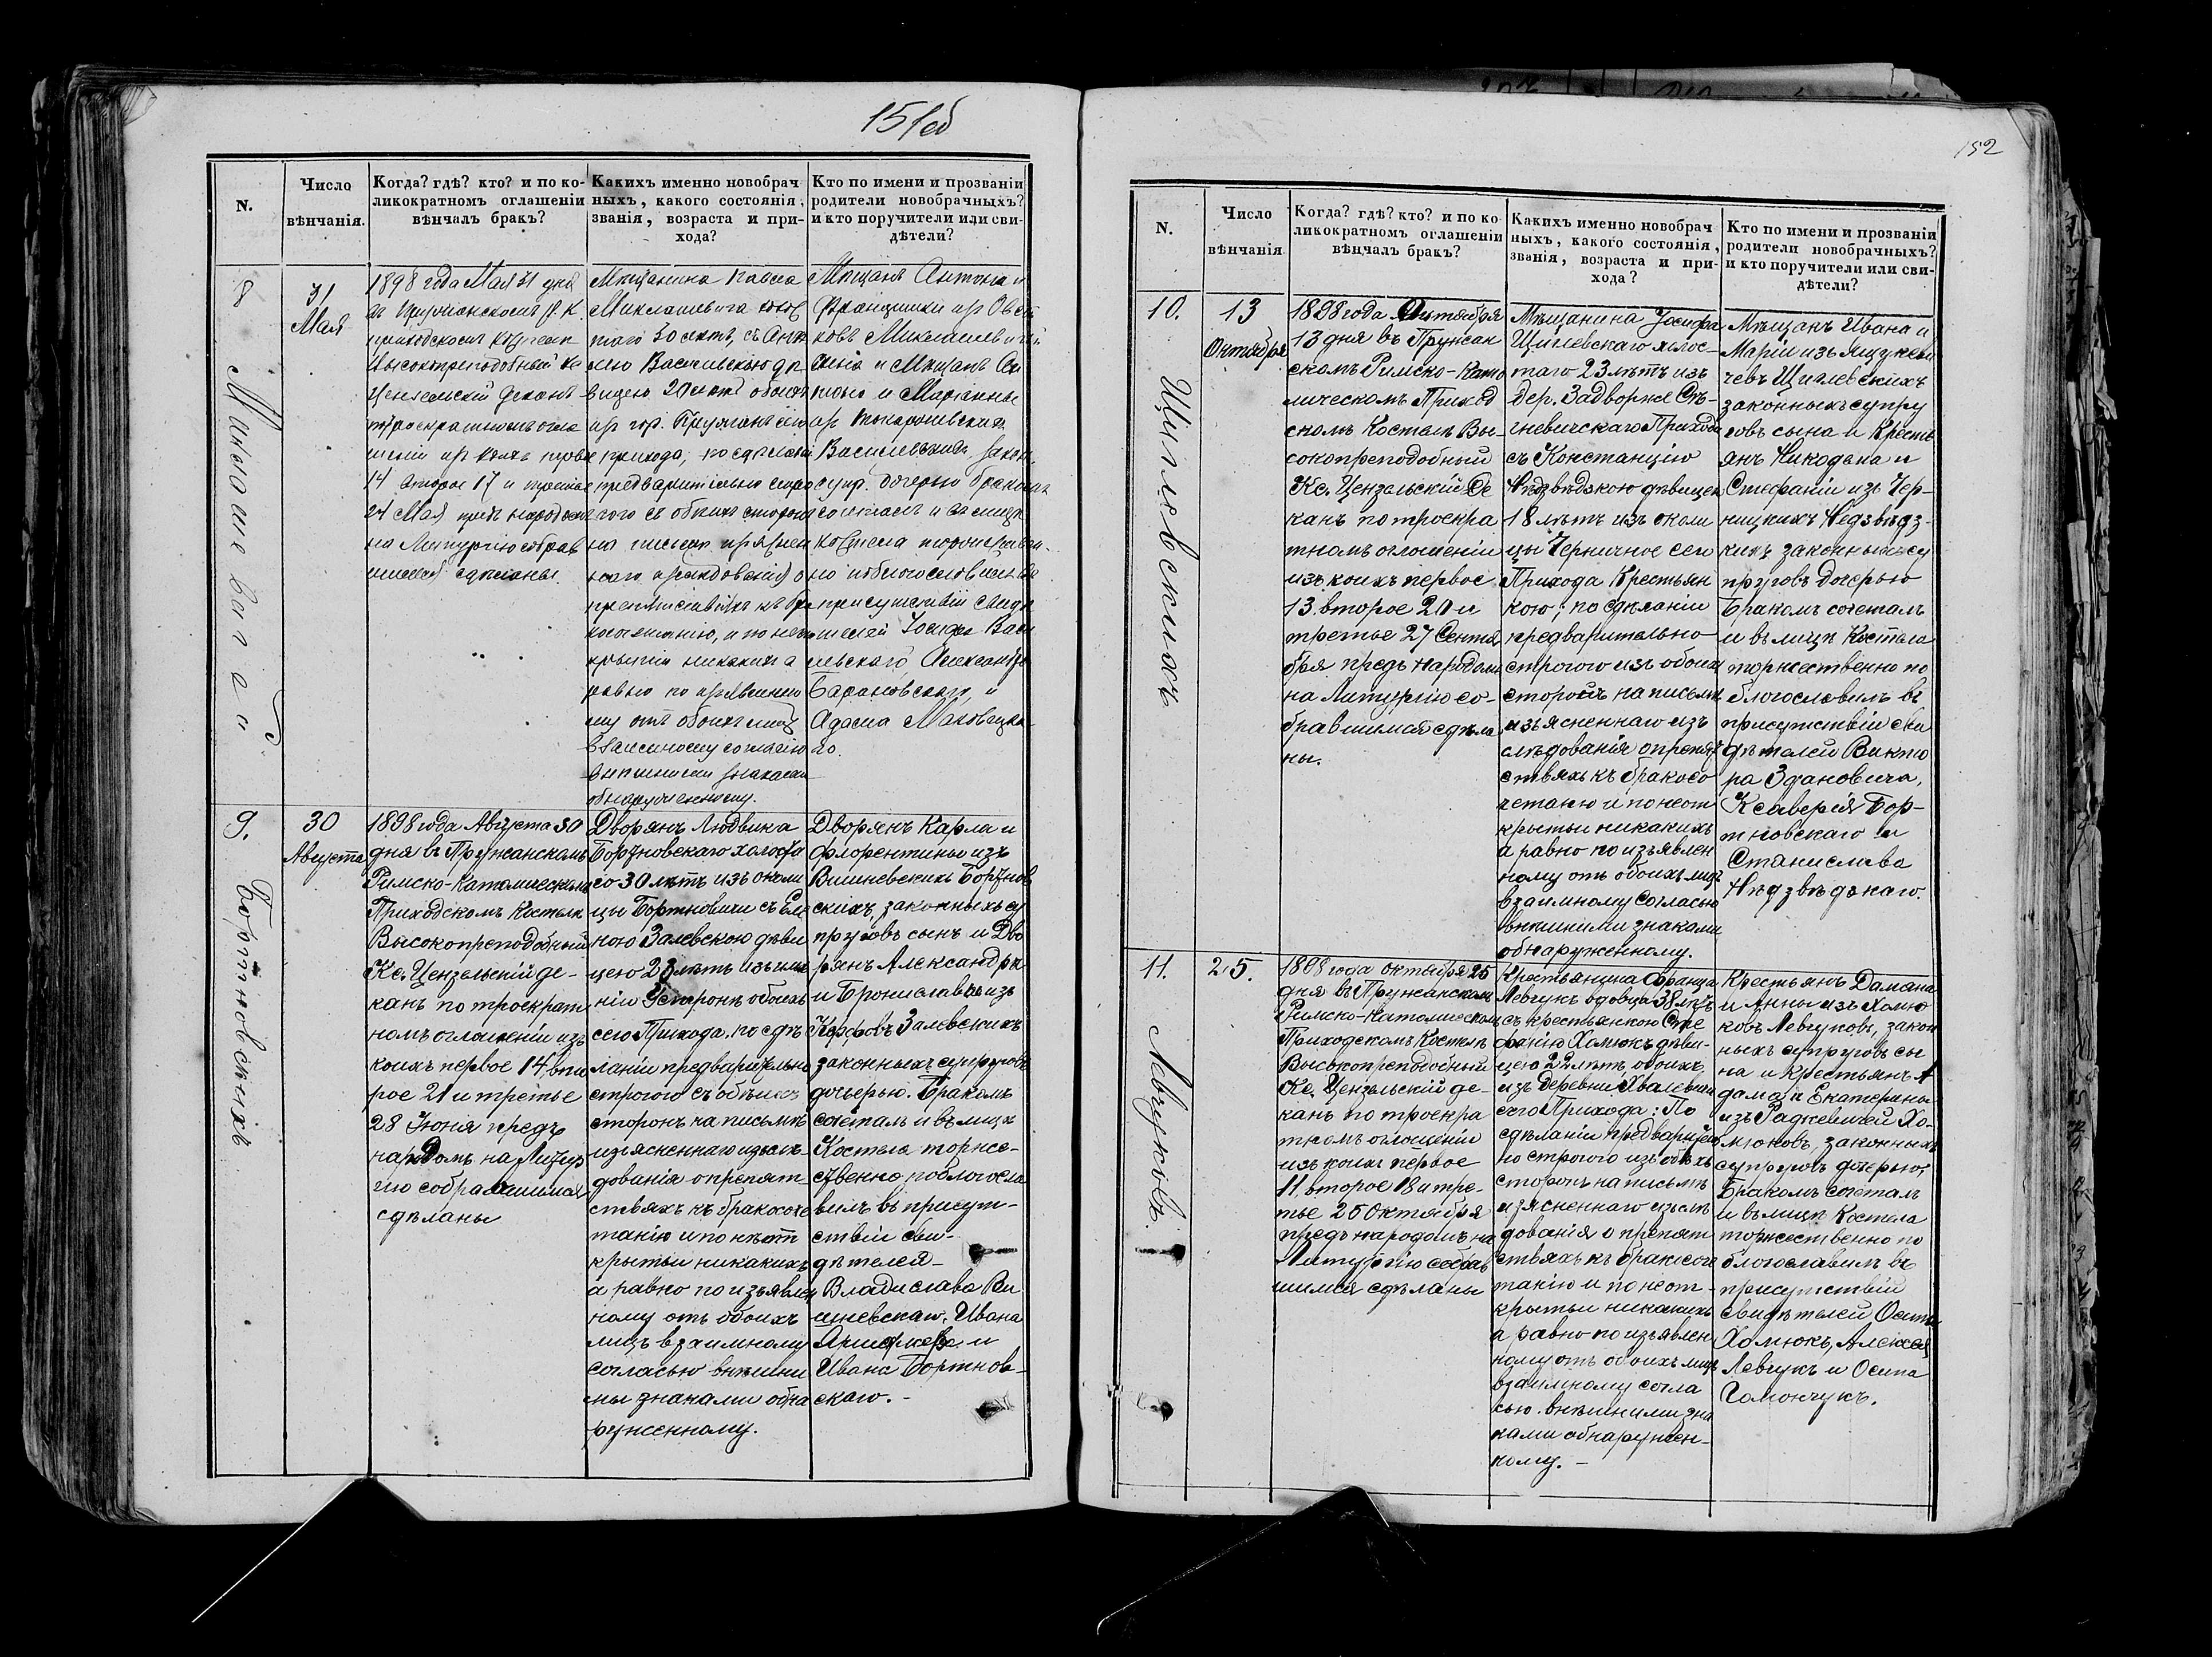 151об
N.
Число
вѣнчанія.
Когда? гдѣ? кто? и по ко-
ликократномъ оглашеніи
вѣнчалъ бракъ?
Какихъ именно новобрач
ныхъ, какого состоянія,
званія, возраста и при-
хода?
Кто по имени и прозваніи
родители новобрачныхъ?
и кто поручители или сви-
дѣтели?
8
31
Мая
1898 года Мая 31 дня
въ Пружанскомъ Р. К.
приходскомъ
Высокопреподобный Кс
Цензельскій Деканъ
троекратномъ огла
шеніи изъ коихъ первое
14 второе 17 и третье
24 Мая предъ народомъ
на Литургію собрав
шимся сдѣланы
Мѣщанина Павла
Миклашевича холос
таго 30 лѣтъ, съ
Василевскою дѣ
вицею 20 лѣтъ обоихъ
изъ гор. Пружанъ сего
прихода, по сдѣланіи
предварительно стро
гого съ обѣихъ сторонъ
на письмѣ изъяснен
наго изслѣдованія о
препятствіяхъ къ бра
косочетанію, и по неот
крытіи никакихъ а
равно по изъявленно
му отъ обоихъ лицъ
взаимному согласію
внѣшними знаками
обнаруженному.
Мѣщанъ Антона и
Францишки изъ
ковъ
и Мѣщанъ Ан
тона и Маріанны
изъ
Василевскихъ закон.
супр. дочерью бракомъ
сочеталъ и въ лицѣ
костела торжествен-
но поблагословилъ въ
присутствіи свидѣ
телей Іосифа Васи
левскаго Александра
Барановскаго и
Адама Маковецка
го.
9.
Бортновскихъ
30
Августа
1898 года Августа 30
дня въ Пружанскомъ
Римско-Католическомъ
Приходскомъ Костелѣ
Высокопреподобный
Кс. Цензельскій де-
канъ по троекрат
номъ оглашеніи изъ
коихъ первое 14, вто
рое 21 и третье
28 Июня предъ
народомъ на Литур
гію собравшимся
сдѣланы
Дворянъ Людвика
Бортновскаго холоста
го 30 лѣтъ изъ околи
цы Бортновичи съ Еле
ною Залевскою дѣви
цею 23 лѣтъ изъ имѣ
нія Устронь обоихъ
сего Прихода. по сдѣ
ланіи предварительно
строгого съ обѣихъ
сторонъ на письмѣ
изъясненнаго изслѣ-
дованія о препят-
ствіяхъ къ бракосоче
танію и по неот
крытьи никакихъ
а равно по изъявлен
ному отъ обоихъ
лицъ взаимному
согласью внѣшни
ми знаками обна
руженному.
Дворянъ Карла и
Флорентины изъ
Вишневскихъ Бортнов
скихъ, законныхъ су
пруговъ сынъ и Дво
рянъ Александра
и Брониславы изъ
Залевскихъ
законныхъ супруговъ
дочерью. Бракомъ
сочеталъ и въ лицѣ
Костела торже-
ственно поблагосло
вилъ въ присут-
ствіи сви-
дѣтелей-
Владислава Ви
шневскаго, Ивана
и
Ивана Бортнов-
скаго.-
152
N.
Число
вѣнчанія
Когда? гдѣ? кто? и по ко
ликократномъ оглашеніи
вѣнчалъ бракъ?
Какихъ именно новобрач
ныхъ, какого состоянія,
званія, возраста и при-
хода?
Кто по имени и прозваніи
родители новобрачныхъ?
и кто поручители или сви-
дѣтели?
10.
Щиглевскихъ
13
Октября
1898 года Октября
13 дня въ Пружан
скомъ Римско-Като
лическомъ Приход
скомъ Костелѣ Вы-
сокопреподобный
Кс. Цензельскій Де
канъ по троекра
тномъ оглошеніи
изъ коихъ первое
13. второе 20 и
третье 27 Сентя
бря предъ народомъ
на Литургію со-
бравшимся сдѣла
ны.
Мѣщанина Іосифа
Щиглевскаго холос-
таго 23 лѣтъ изъ
дер. Задворже Сѣ-
гневичскаго Прихода
съ Констанцію
Нѣдзвѣдзкою дѣвицею
18 лѣтъ изъ околи
цы Черничное сего
Прихода Крестьян
кою; по сдѣланіи
предварительно
строгого изъ обоихъ
сторонъ на письмѣ
изъясненнаго изъ
слѣдованія о препят
ствяхъ къ бракосо
четанію и по неот
крытьи никакихъ
а равно по изъявлен
ному отъ обоихъ лицъ
взаимному согласью
внѣшними знаками
обнаруженному.
Мѣщанъ Ивана и
Маріи изъ Яцукеви
чевъ Щиглевскихъ
законныхъ супру
говъ сына и Кресть
янъ Никодима и
Стефаніи изъ Чер-
ницкихъ Недзвѣдз-
кихъ законныхъ су
пруговъ дочерью
Бракомъ сочеталъ
и въ лицѣ Костела
торжественно по
благословилъ въ
присутствіи сви
дѣтелей Викто
ра Здановича,
Ксаверія Бор-
тновскаго и
Станислава
Нѣдзвѣдзкаго.
11.
Левчуковъ.
25.
1898 года октября 25
дня въ Пружанскомъ
Римско-Католическомъ
Приходскомъ Костелѣ
Высокопреподобный
Кс. Цензельскій де-
канъ по троекра
тномъ оглошеніи
изъ коихъ первое
11, второе 18 и тре-
тье 25 Октября
предъ народомъ на
Литургію собрав
шимся сдѣланы
Крестьянина Франца
Левчукъ вдовца 38 лѣтъ
съ крестьянкою Сте
фанію Холмокъ дѣви-
цею 22 лѣтъ, обоихъ
изъ деревни Хвалевичи
сего Прихода: По
сдѣланіи предваритель
но строгого изъ обѣихъ
сторонъ на письмѣ
изъясненнаго изслѣ
дованія о препят
ствяхъ къ бракосоче
танію и по неот-
крытьи никакихъ
а равно по изъявлен
ному отъ обоихъ лицъ
взаимному согла
сью внѣшними зна
ками обнаружен-
ному.-
Крестьянъ Дамана
и Анны изъ Холмо
ковъ Левчуковъ, закон
ныхъ супруговъ сы
на и Крестьянъ А
дама и Екатерины
изъ Радкевичей Хо-
лмоковъ, законныхъ
супруговъ дочерью,
Бракомъ сочеталъ
и въ лицѣ Костела
торжественно по
благославилъ въ
присутствіи
свидѣтелей Осипа
Холмокъ, Алексѣя
Левчукъ и Осипа
Гамончукъ.